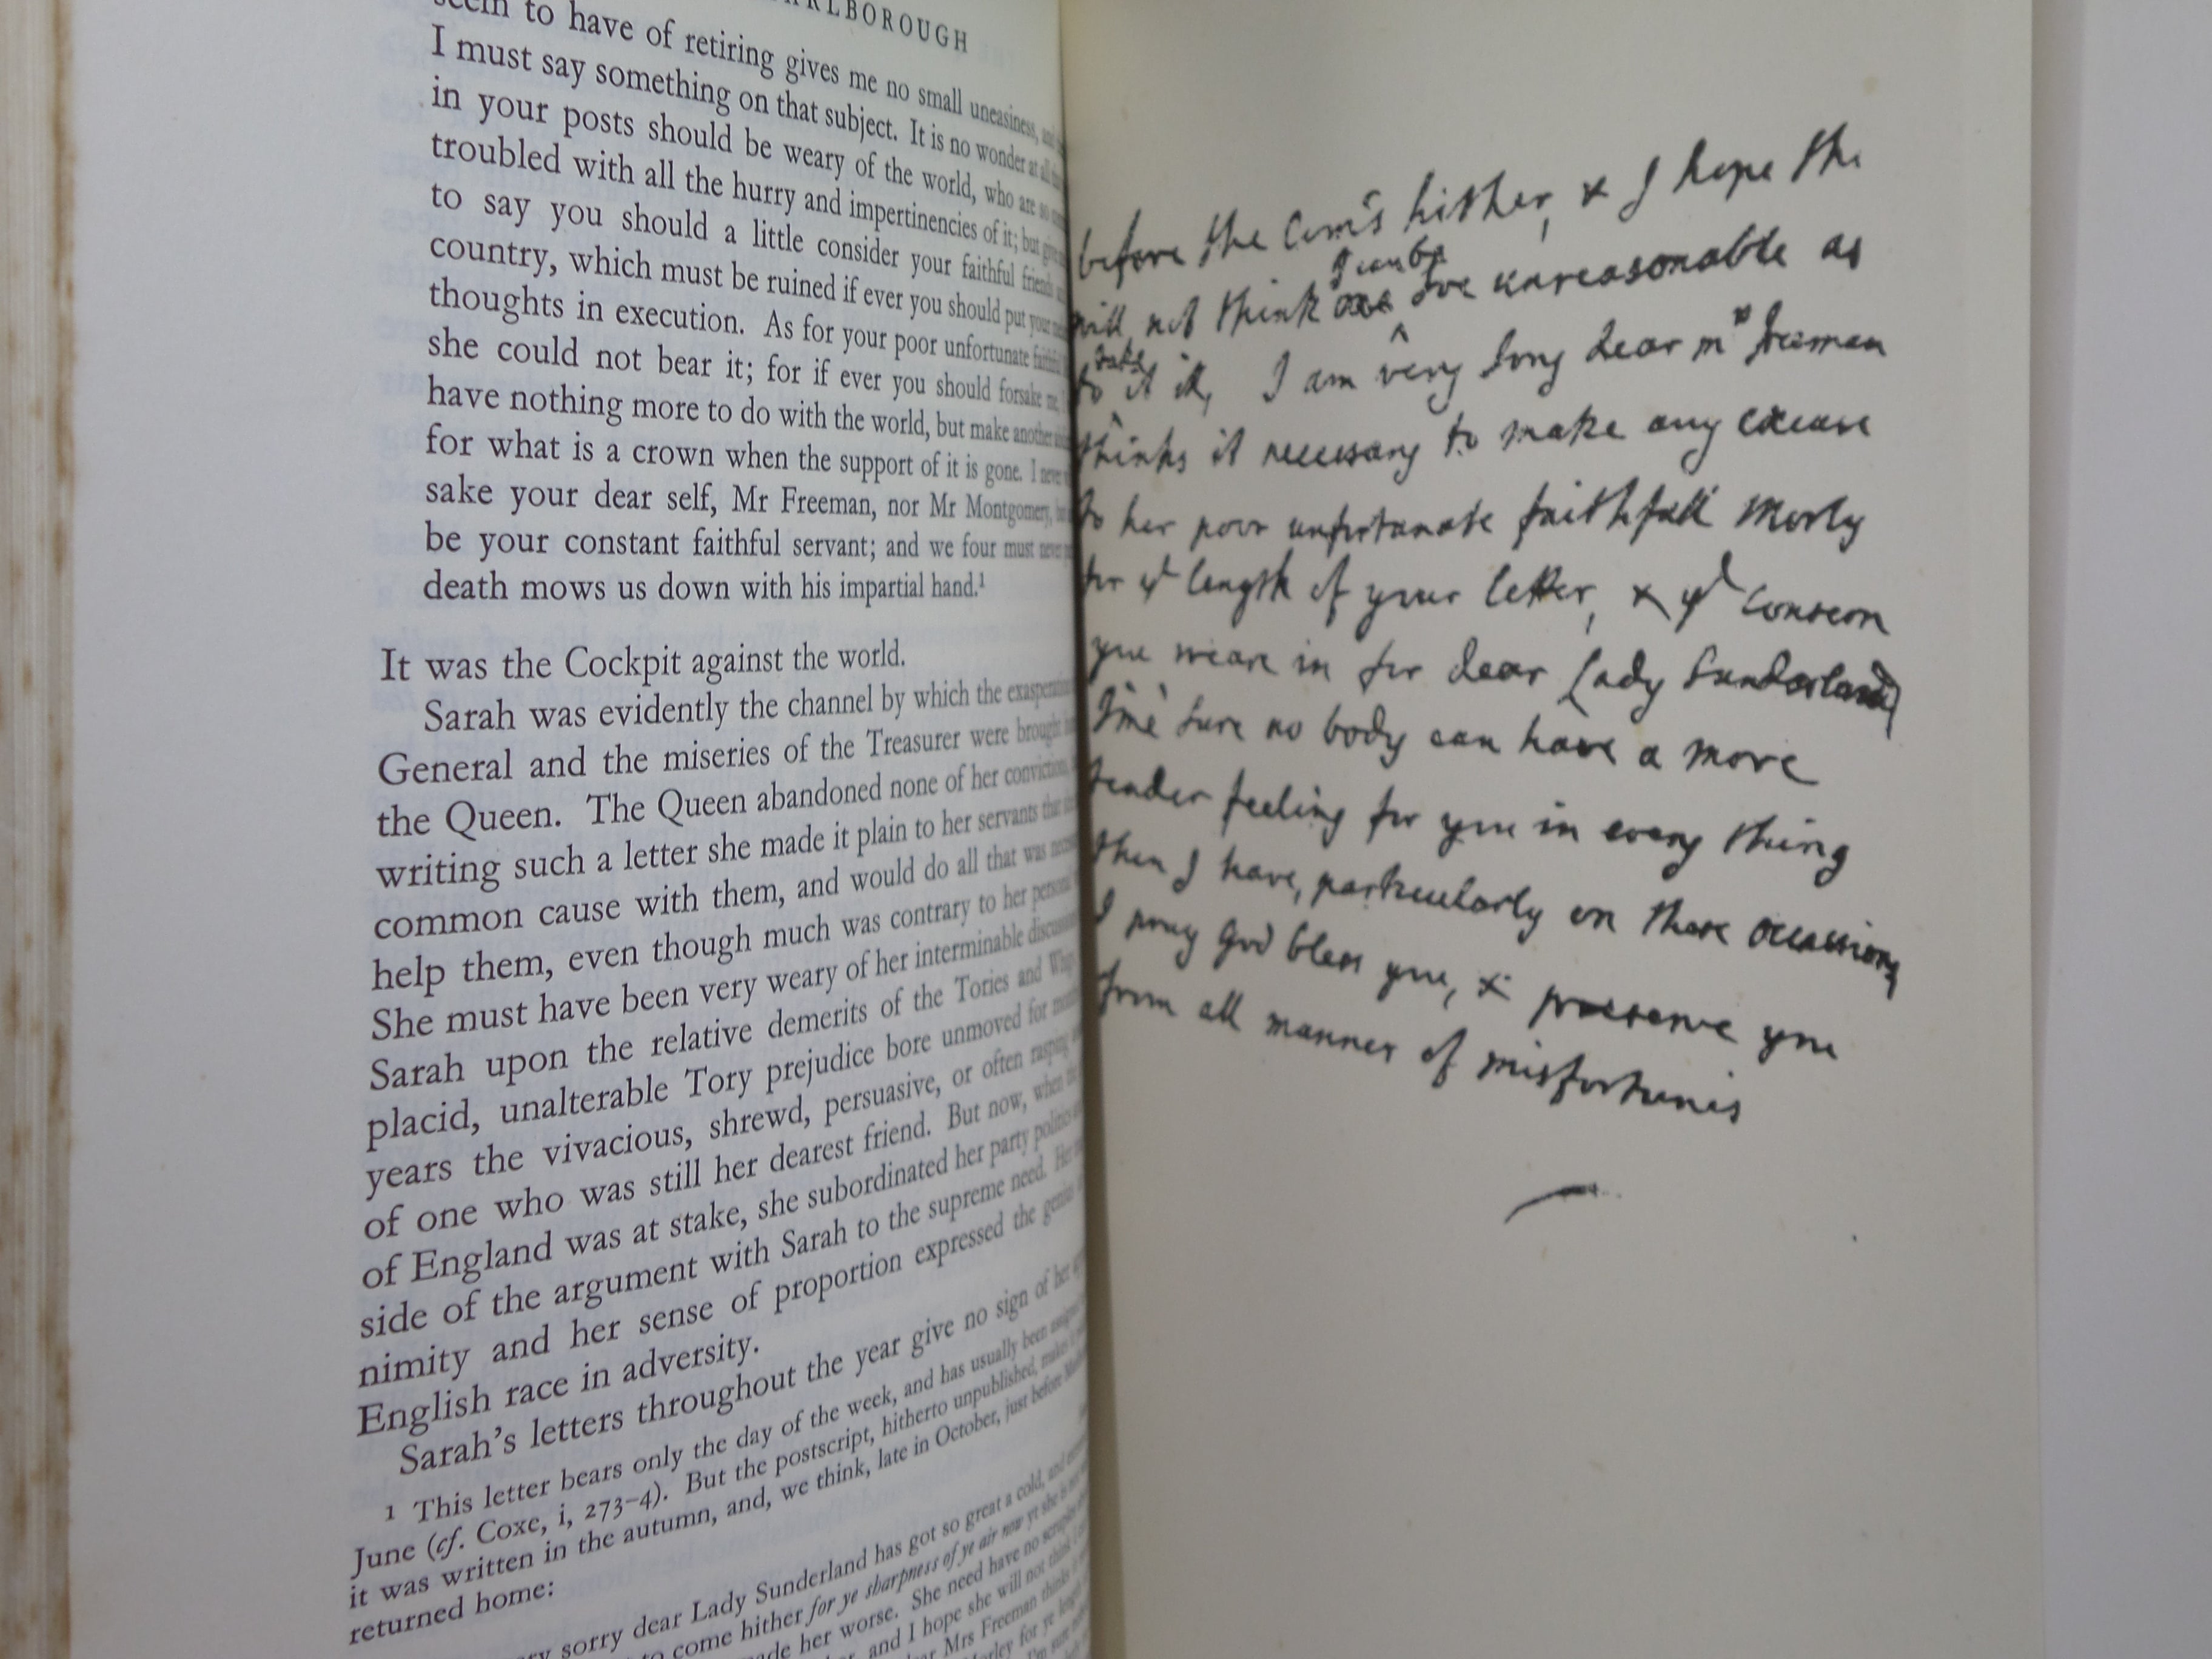 MARLBOROUGH
seem to have of retiring gives me no small uneasiness,
I must say something on that subject. It is no wonder at all
in your posts should be weary of the world, who are so
troubled with all the hurry and impertinencies of it; but
to say you should a little consider your faithful friends
country, which must be ruined if ever you should put your
thoughts in execution. As for your poor unfortunate
she could not bear it; for if ever you should forsake me,
have nothing more to do with the world, but make another
for what is a crown when the support of it is gone. I never
sake your dear self, Mr Freeman, nor Mr Montgomery,
be your constant faithful servant; and we four must never
death mows us down with his impartial hand.¹
It was the Cockpit against the world.
Sarah was evidently the channel by which the
General and the miseries of the Treasurer were brought
the Queen. The Queen abandoned none of her conviction,
writing such a letter she made it plain to her servants that
common cause with them, and would do all that was
help them, even though much was contrary to her
She must have been very weary of her interminable
Sarah upon the relative demerits of the Tories and
placid, unalterable Tory prejudice bore unmoved for
years the vivacious, shrewd, persuasive, or often rasping
of one who was still her dearest friend. But now, when
of England was at stake, she subordinated her party politics
side of the argument with Sarah to the supreme need. Her
nimity and her sense of proportion expressed the genius
English race in adversity.
Sarah's letters throughout the year give no sign of her
1 This letter bears only the day of the week, and has usually been
June (cf. Coxe, i, 273–4). But the postscript, hitherto unpublished, makes it
it was written in the autumn, and, we think, late in October, just before
returned home:
sorry dear Lady Sunderland has got so great a cold, and
to come hither for ye sharpness of ye air now yt she is
her worse. She need have no
and I hope she will not think
Mrs Freeman thinks
for ye length
before the com's hither, & I hope she
will not think I can be soe unreasonable as
to take it ill, I am very sory dear mrs freeman
thinks it necessary to make any excuse
to her poor unfortunate faithfull Morly
for ye length of your letter, & ye concern
you weare in for dear Lady Sunderland
I'me sure no body can have a more
tender feeling for you in every thing
then I have, particularly on these occassions
I pray God bless you, & preserve you
from all manner of misfortunes